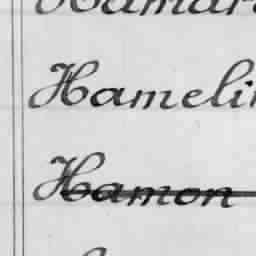 Hamelin
Hamon